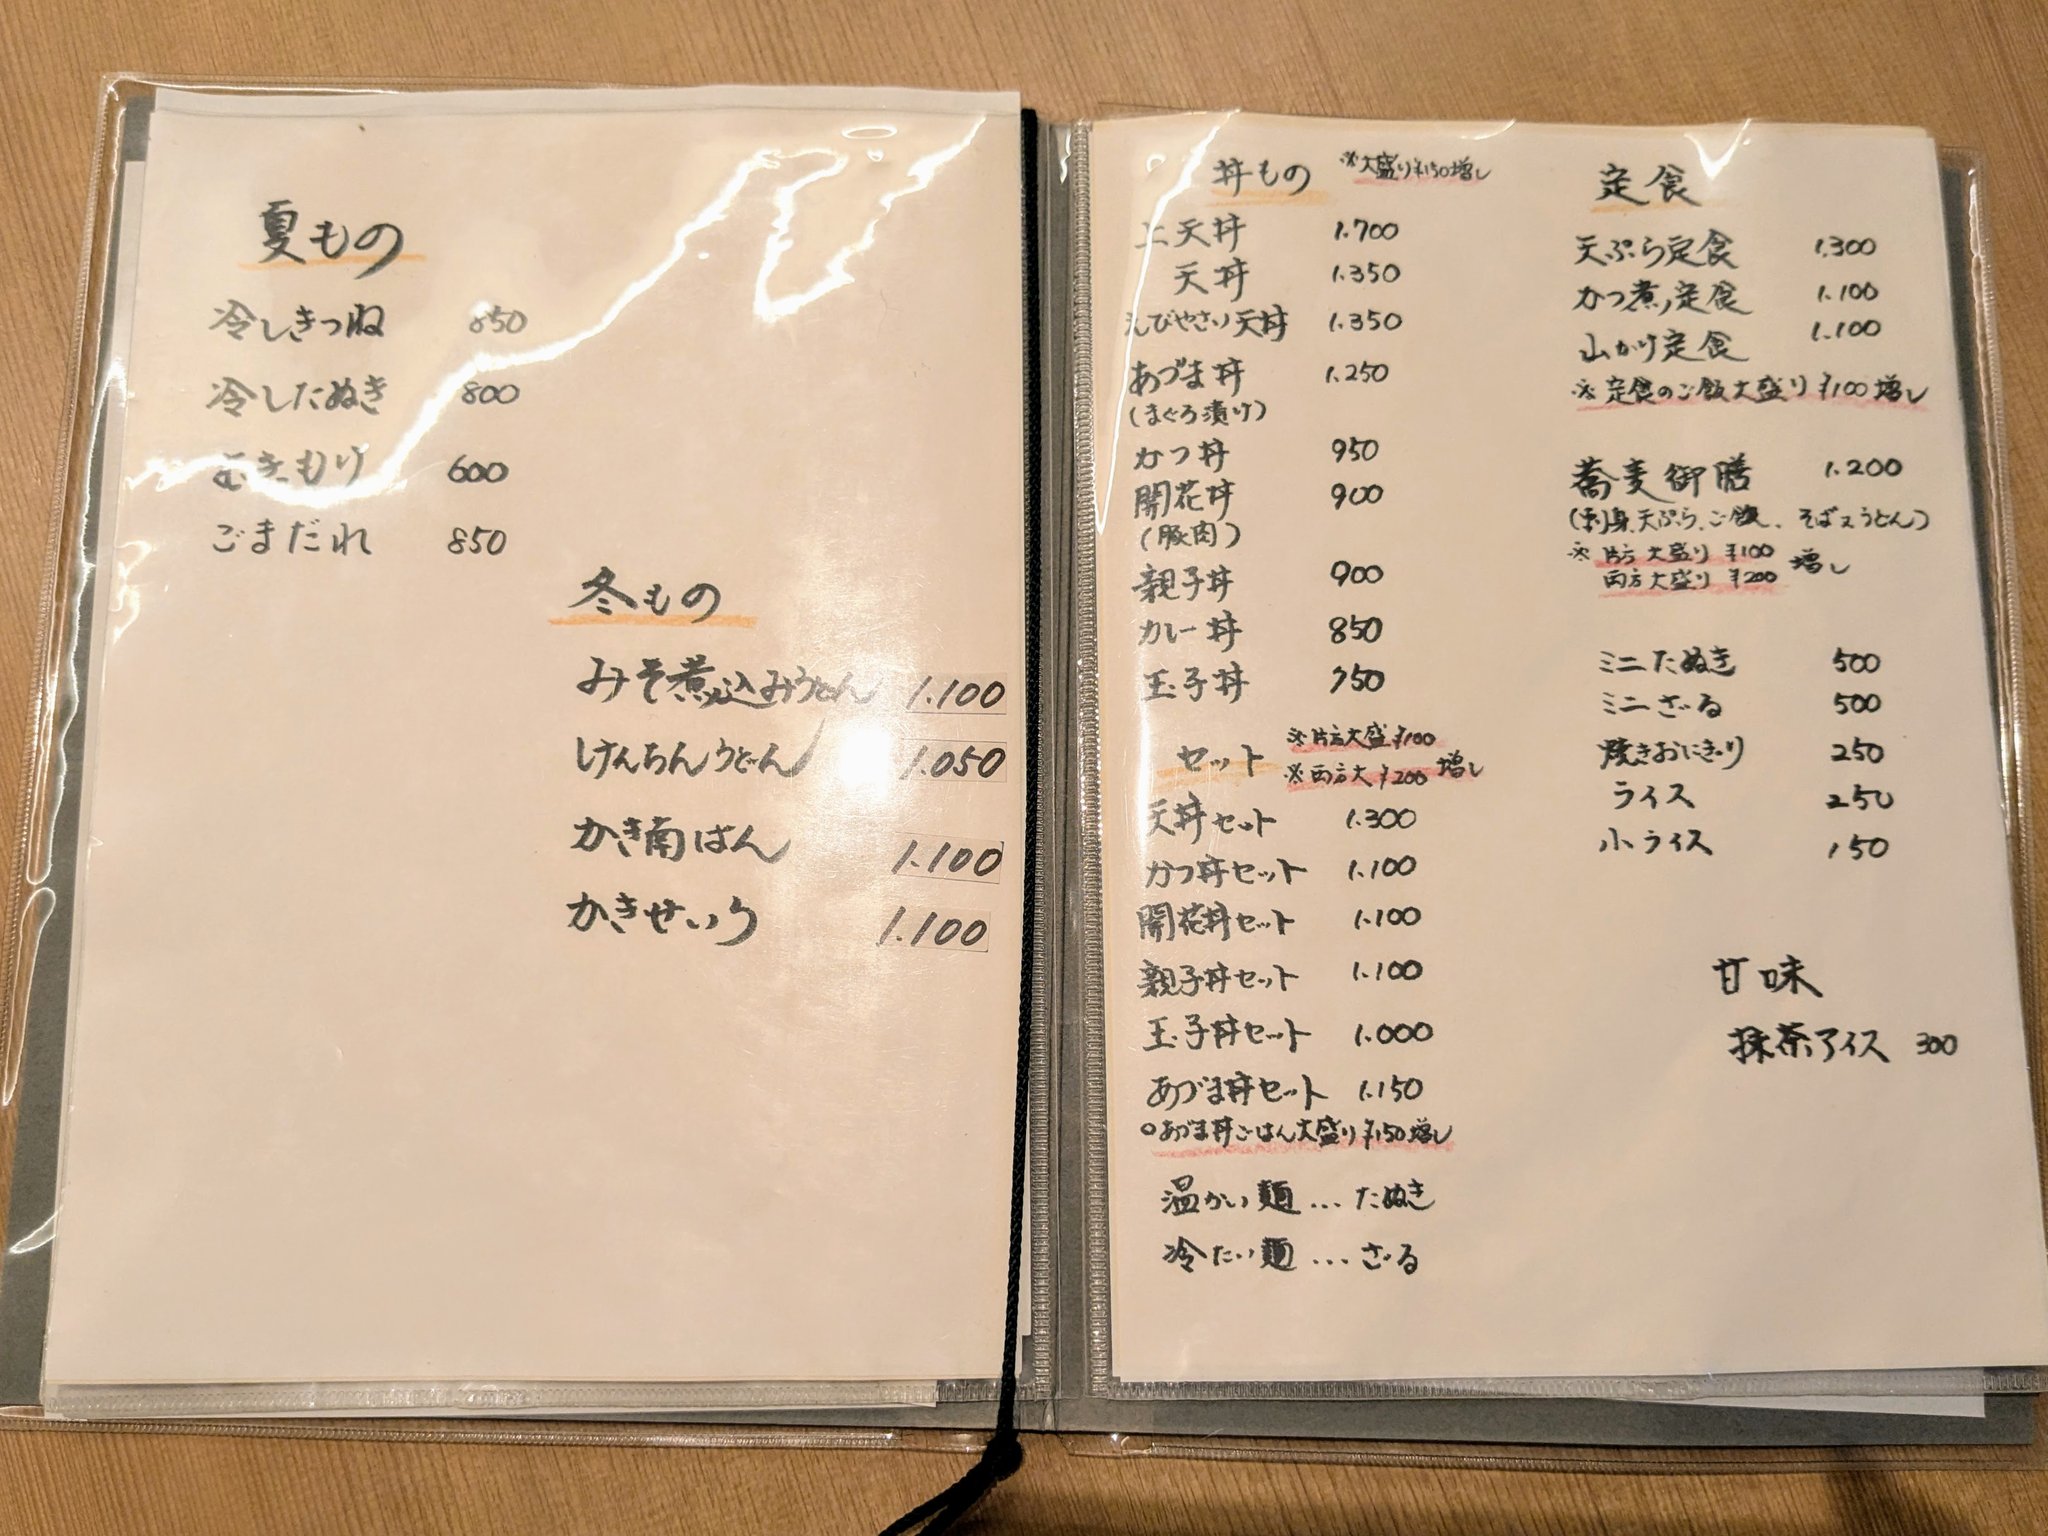 夏もの
冷しきつね 850
冷したぬき 800
もり 600
ごまだれ 850
冬もの
みそ煮込みうどん 1.100
けんちんうどん 1.050
かき南ばん 1.100
かきせいろ 1.100
丼もの ※大盛り¥150増し
上天丼 1.700
天丼 1.350
えびやさい天丼 1.350
あづま丼 1.250
(まぐろ漬け)
かつ丼 950
開花丼 900
(豚肉)
親子丼 900
カレー丼 850
玉子丼 750
セット ※片方大盛¥100
※両方大¥200 増し
天丼セット 1.300
かつ丼セット 1.100
開花丼セット 1.100
親子丼セット 1.100
玉子丼セット 1.000
あづま丼セット 1.150
○あづま丼ごはん大盛り¥150増し
温かい麺…たぬき
冷たい麺…ざる
定食
天ぷら定食 1.300
かつ煮定食 1.100
山かけ定食 1.100
※定食のご飯大盛り¥100増し
蕎麦御膳 1.200
(刺身、天ぷら、ご飯、そば又うどん)
※片方大盛り¥100
両方大盛り¥200 増し
ミニたぬき 500
ミニざる 500
焼きおにぎり 250
ライス 250
小ライス 150
甘味
抹茶アイス 300